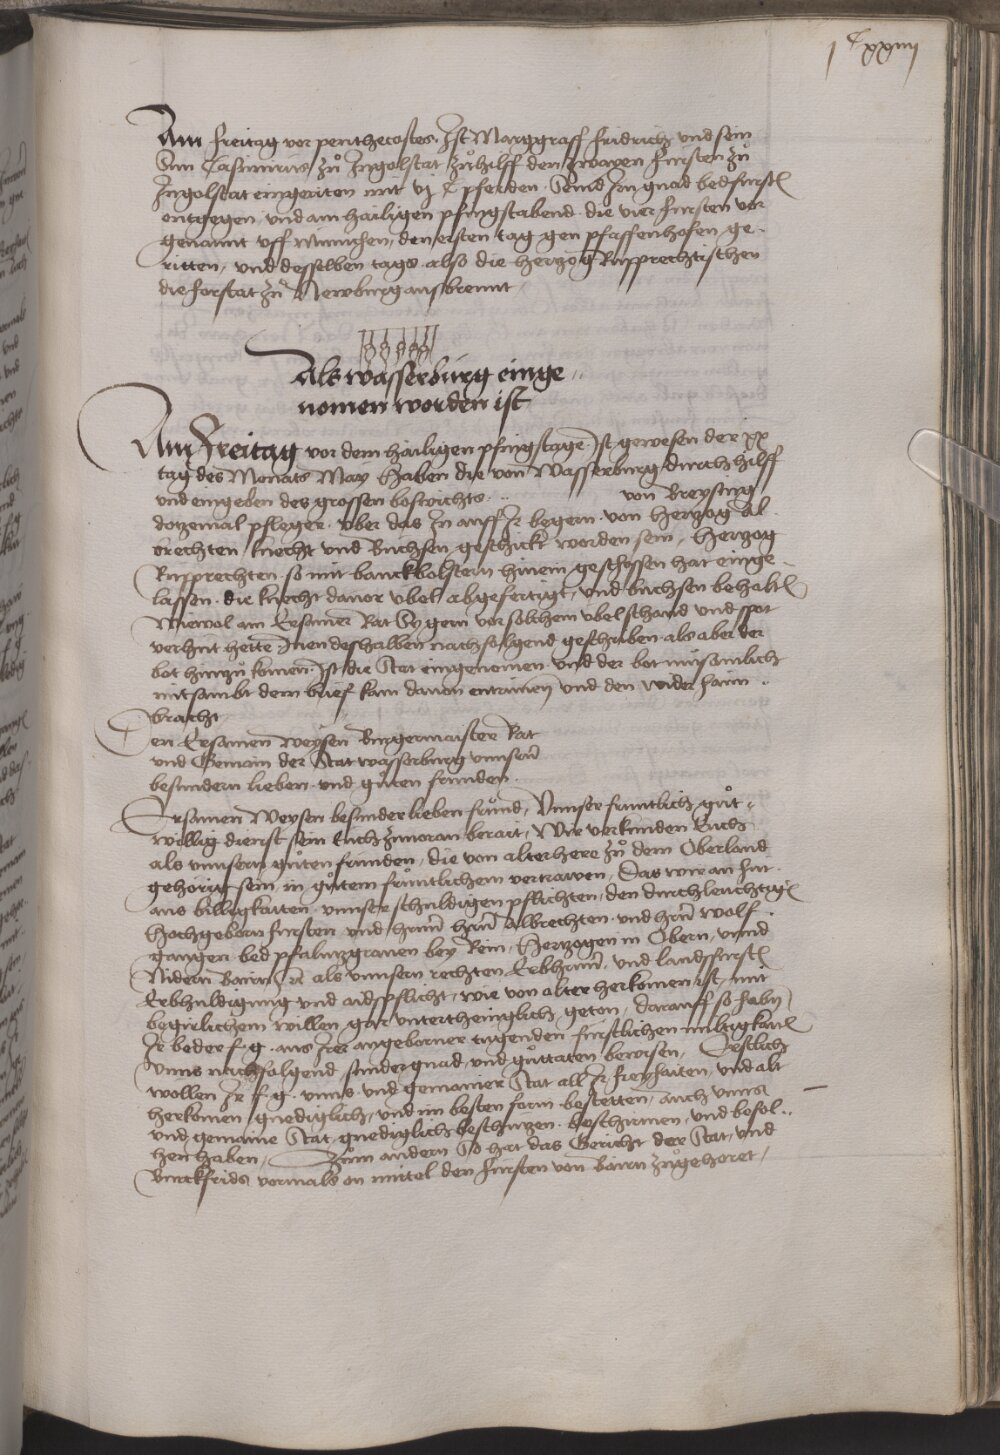 1 Cxxiiij
Am freitag vor penthecostes Ist Marggraff fridrich und sein
Sun Casimirus zu Ingolstat zuhilff den zwayen fursten zu
Ingolstat eingeriten mit vj C pferden Sennd Irn gnad bed furstn
entgegen und am hailigen pfingstabend die vier fursten vor
genannt uff munichen, den ersten tag gen pfaffenhofen ge-
ritten, und desselben tags also die herzog Rupprechtischen
die forstat zu Newburg ausbrennt
Als wasserburg einge-
nomen worden ist
Am Freitag vor dem hailigen pfingstage Ist gewesen der xx
tag des Monats May haben die von Wasserburg durch hilff
und eingeben des grossen boswichts von Breysing
dotzemal pfleger uber das In auff Ir begern von herzog Al-
brechten knecht und Buchsen geschickt worden sein, Herzog
Rupprechten so mit banckbolstern hinein geschossen hat einge-
lassen die knecht davor ubel abgefertigt, und buchsen behaltn
Wiewol ain Ersamer Rat Sy gern vor solchem ubel schand und spot
verhut hette Inen deshalben nachfolgend geschriben als aber der
bot hinzu komen Ist die Stat eingenomen und der bot mitsamlich
mitsambt dem brief kam davon entrunnen und den wider haim
bracht
Den Ersamen weysen Burgermaister Rat
und Gemain der Stat wasserburg unnsern
besundern lieben und guten frunden
Ersamen Weysen besunder lieben frund, Unnser fruntlich gut-
willig dienst sein Euch zuvoran berait, Wir verkunden Euch
als unnsern guten frunden, die von alter here zu dem Oberland
gehorig sein, in gutem fruntlichem vertrawen, Das wir an heut
aus billigkaiten unnser schuldigen pflichten, den durchleuchtign
hochgeborn fursten und herrn herrn Albrechten und herrn wolf-
ganngen bed pfaltzgraven bey Rein, Herzogen in Obern, unnd
Nidern Bairn etc als unnsern rechten Erbherrn, und landsfurstn
Erbhuldigung und aidspflicht, wie von alter herkomen ist, mit
begirlichem willen gar unterthenigklich, geton, darauff so habn
Ir beder f. g. aus Irer angeborner tugenden furstlichen miltigkait
Unns nachfolgend sunder gnad, und guttaten bewisen, Erstlich
wollen Ir f. g. unns und gemainer Stat all Ir freyhaiten, und alt
herkomen gnediglich, und im besten form bestetten, auch unns
und gemaine Stat, gnediglich beschutzen beschirmen, und befol-
hen haben, Zum andern So hat das Gericht der Stat, und
Burckfrids vormals on mitel den fursten von Bairn zugehoret,